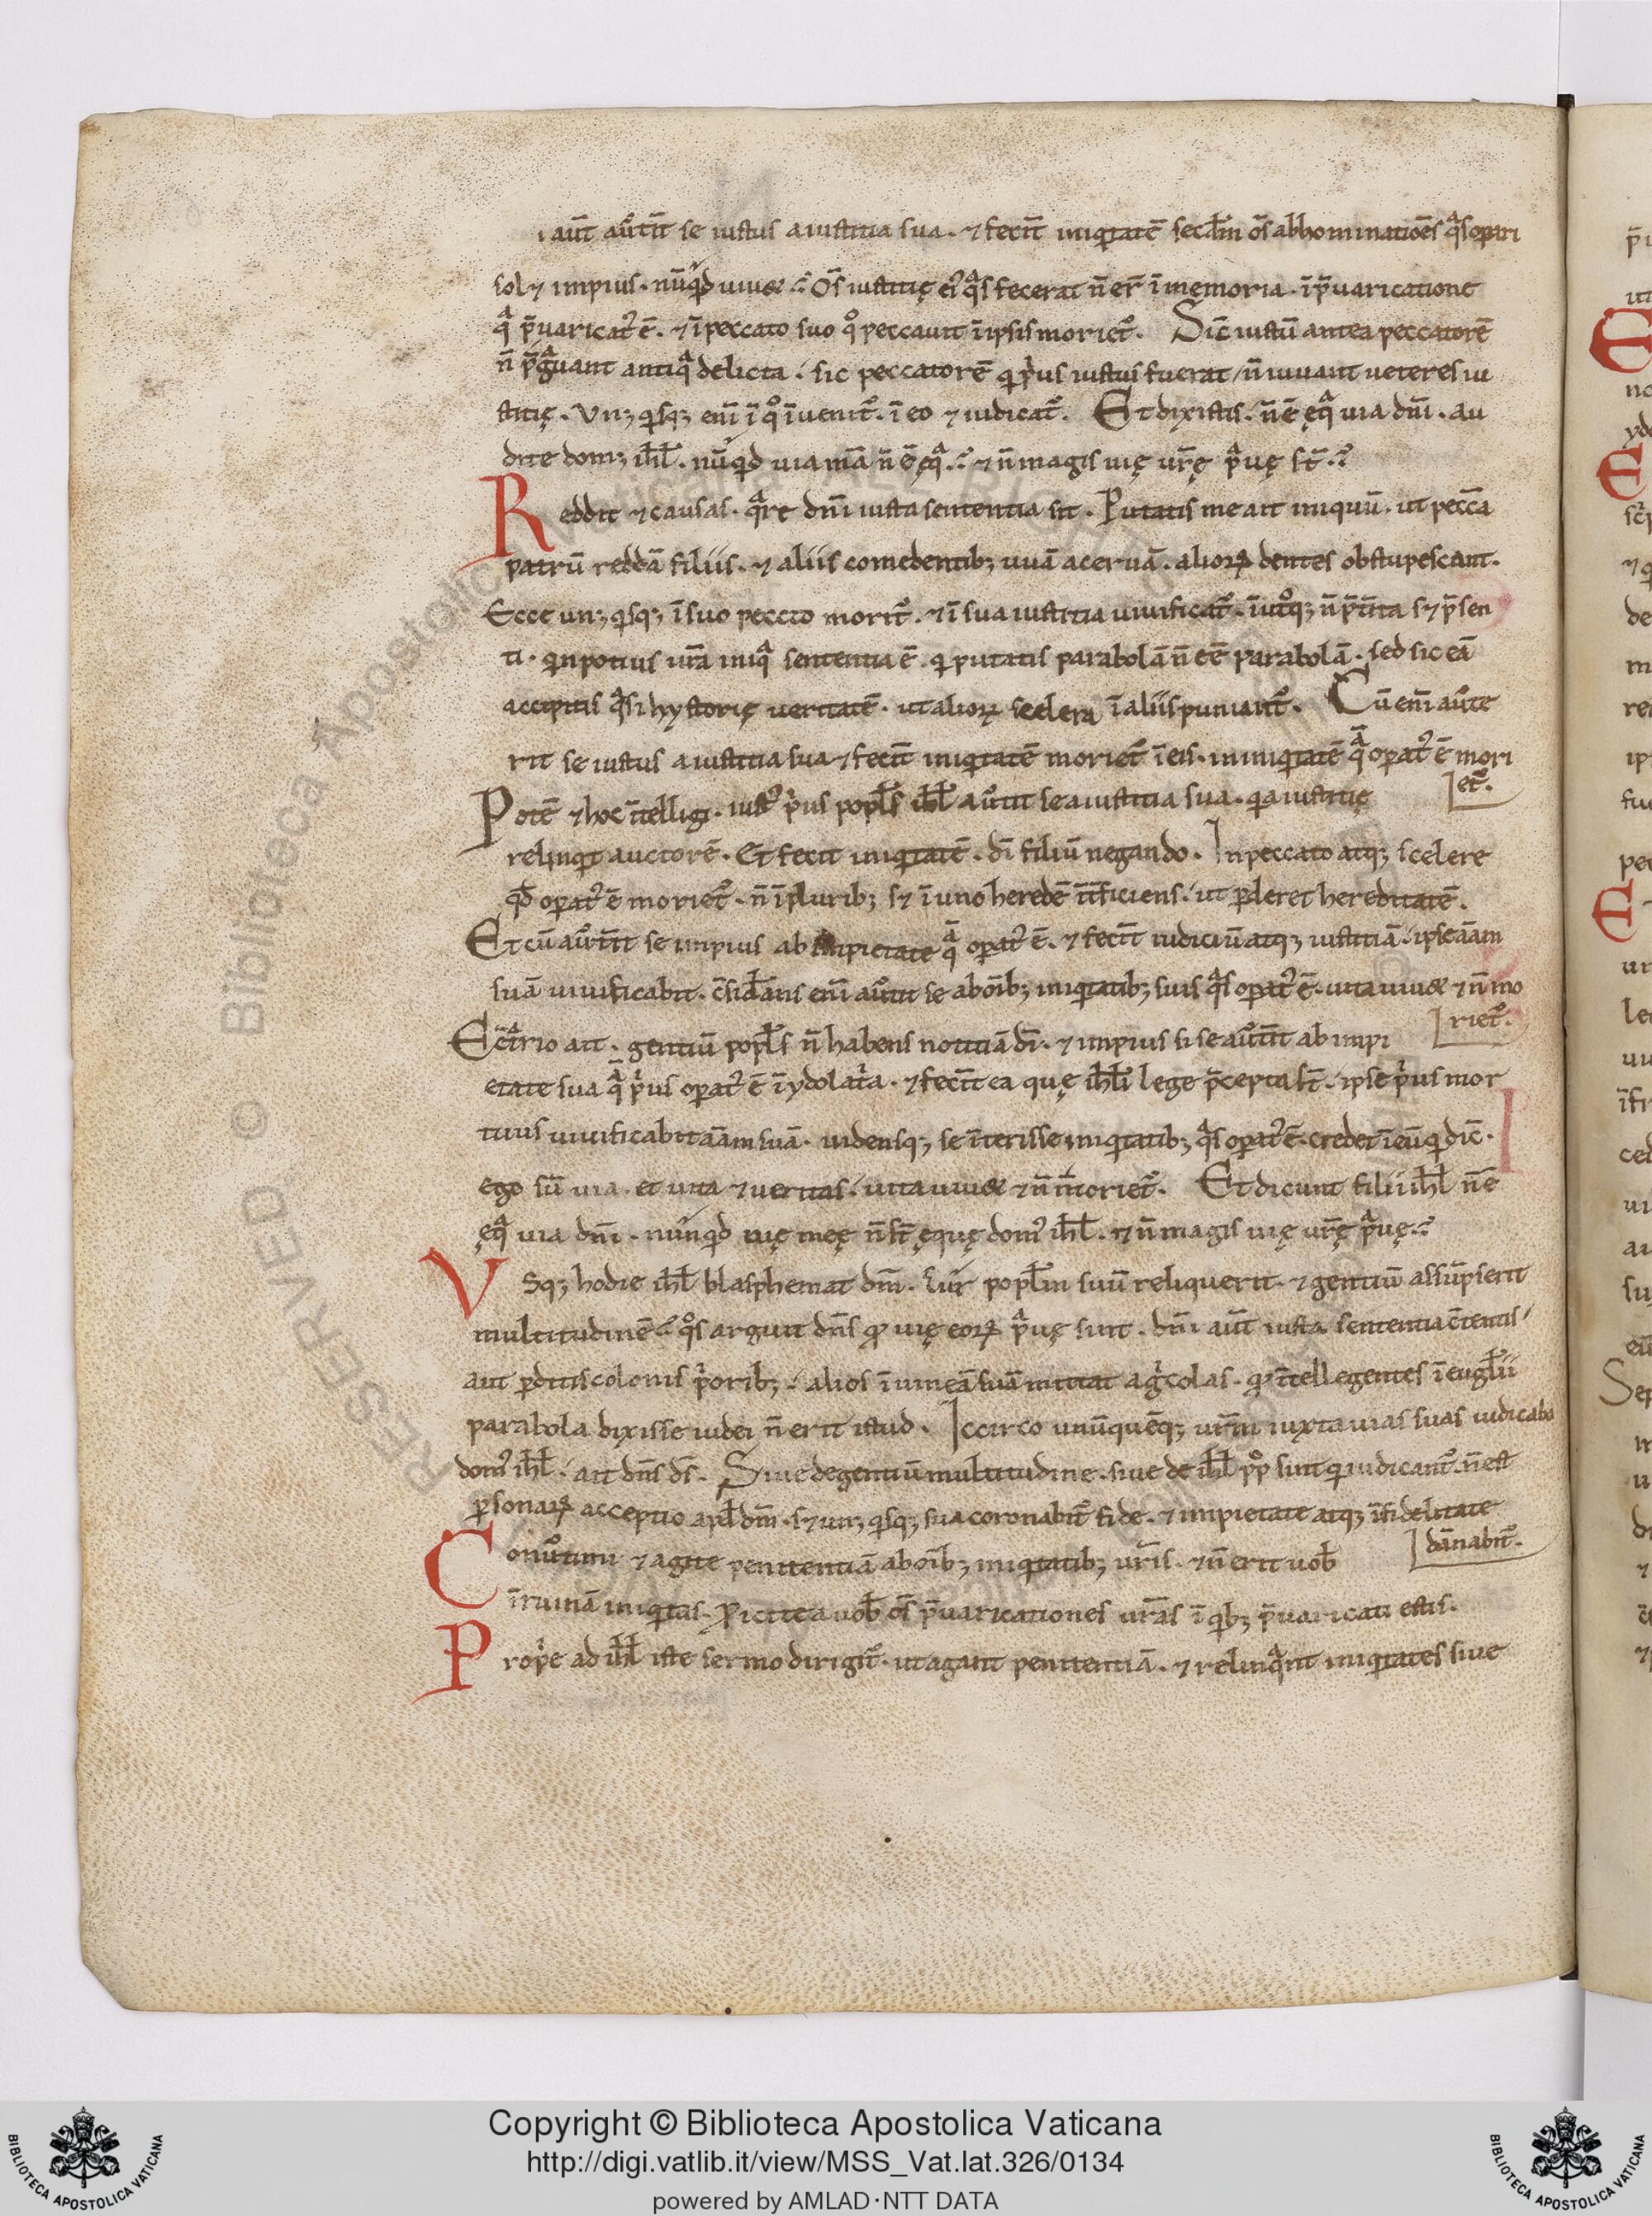 i aūt aūtit se iustus a iustitia sua. ⁊ fecit̄ iniq̇tatē secdm̄ om̄s abhominatiōēs q̃s opari
sol& impius. nūq̇d uiu&? Om̄s iustitię eiꝰ q̃s fecerat n̄ er̄ ī memoria. ī p̄uaricatione
q̃ p̄uaricatꝰ ē. ⁊ ī peccato suo qͦ peccauit ī ipsis moriet̄. Sic iustū antea peccatorē
n̄ p̄g̃uant antiq̃ delicta. sic peccatorē q̇ pͥus iustus fuerat / n̄ iuuant ueteres iu
stitię. Vnꝰ q̇sq; eni ī qͦ īuenit̄. ī eo ⁊ iudicat̄. Et dixistis. n̄ ē ęq̃ uia dn̄i. au
dite domꝰ ihl̄. nūq̇d uia mā n̄ ē ęq̃? ⁊ n̄ magis uię ur̄ę p̃uę st̄?
Reddit ⁊ causas. q̃re dn̄i iusta sententia sit. Putatis me ait iniquū. ut pecc̄a
patrū reddā filiis. ⁊ aliis comedentib; uuā aceruā. alioꝝ dentes obstupescant.
Ecce unꝰ q̇sq; ī suo peccto morit̄. ⁊ ī sua iustitia uiuificat̄. n̄ p̄tīta s& p̄sen
ti. q̇n potius ur̄a iniq̃ sententia ē. q̇ putatis parabolā n̄ eē parabolā. sed sic eā
accipitis q̃si hystorię ueritatē. ut alioꝝ scelera ī aliis puniant̄. Cū eni aūte
rit se iustus a iustitia sua ⁊ fecit̄ iniq̇tatē moriet̄ ī eis. in iniq̇tatē q̃ opatꝰ ē mori
et̄.
Potē ⁊ hoc ītelligi. iustꝰ pͥus popl̄s ihl̄ aūtit se a iustitia sua. q̇a iustitię
relinq̇t auctorē. Et fecit iniq̇tatē. dī filiū negando. In peccato atq; scelere
qd̄ opatꝰ ē moriet̄. n̄ ī plurib; s& ī uno heredē īt̄ficiens. ut pderet hereditatē.
Et cū aūtit̄ se impius ab impietate q̃ opatꝰ ē. ⁊ fecit̄ iudiciū atq; iustitiā. ipse āam
suā uiuificabit. c̄sid̄ans eni aūtit se ab oīb; iniq̇tatib; suis q̃s opatꝰ ē. uita uiu& ⁊ n̄ mo
riet̄.
E c̄t̃rio ait. gentiū popl̄s n̄ habens notitiā dī. ⁊ impius si se aūtit̄ ab impi
etate sua q̃ pͥus opatꝰ ē ī ydolat̃a. ⁊ fecit̄ ea quę ihl̄i lege p̄cepta st̄. ipse pͥus mor
tuus uiuificabit āam suā. uidensq; se īterisse iniq̇tatib; q̃s opatꝰ ē. credet ī eū q̇ dic̄.
ego sū uia. et uita ⁊ ueritas. uita uiu& ⁊ n̄ moriet̄. Et dicunt filii ihl̄ n̄ ē
ęq̃ uia dn̄i. nūnq̇d uię meę n̄ st̄ ęquę domꝰ ihl̄. ⁊ n̄ magis uię ur̄ę p̃uę?
Vsq; hodie ihl̄ blasphemat dn̄m. cur popl̄m suū reliquerit. ⁊ gentiū assūpserit
multitudinē? qͦs arguit dn̄s qͦ uię eoꝝ p̃uę sunt. dn̄i aūt iusta sententia
aut pditis colonis pͥorib; alios ī uineā suā mittat agͥcolas. qͦ ītellegentes ī euglīi
parabola dixisse iudei n̄ erit istud. Iccirco unūquēq; ur̄m iuxta uias suas iudicabo
domꝰ ihl̄. ait dn̄s ds̄. Siue de gentiū multitudine. siue de ihl̄ ppͦ sint q̇ iudicant̄. n̄ est
psonaꝝ acceptio apd̄ dm̄. s& unꝰ q̇sq; sua coronabit̄ fide. ⁊ impietate atq; īfidelitate
dānabit̄.
Conūtimi ⁊ agite penitentiā ab oīb; iniq̇tatib; ur̄is. ⁊ n̄ erit uob̄
ī ruinā iniq̇tas. Picite a uob̄ om̄s p̄uaricationes ur̄as ī q̇b; p̄uaricati estis.
Propͥe ad ihl̄ iste sermo dirigit̄. ut agant penitentiā. ⁊ relinq̃nt iniq̇tates siue
Copyright © Biblioteca Apostolica Vaticana
http://digi.vatlib.it/view/MSS_Vat.lat.326/0134
powered by AMLAD·NTT DATA